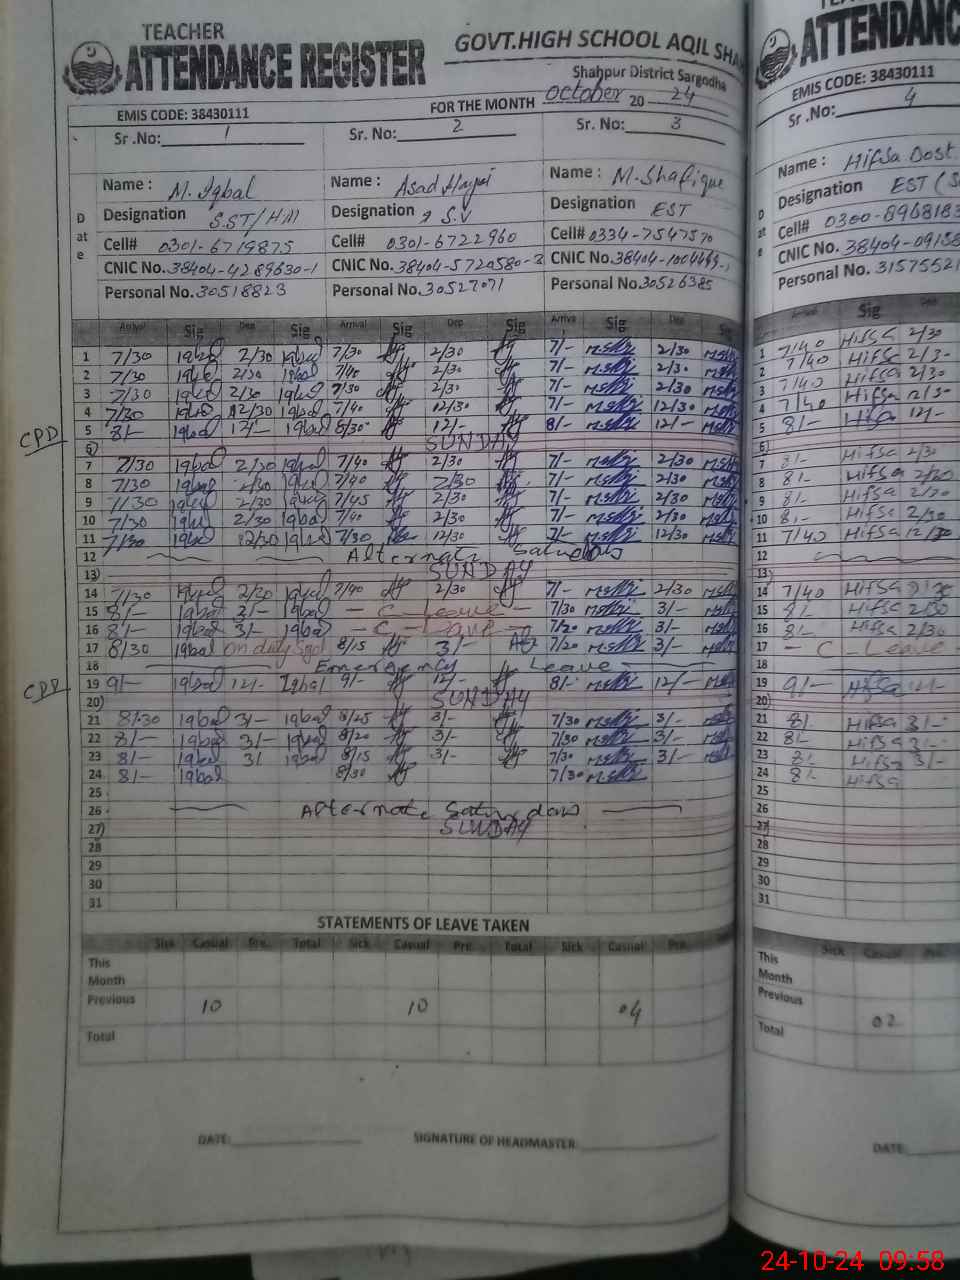 TEACHER
ATTENDANCE REGISTER
GOVT.HIGH SCHOOL AQIL SHAH
Shahpur District Sargodha
EMIS CODE: 38430111
FOR THE MONTH October 20 24
Sr .No: 1 Sr. No: 2 Sr. No: 3
Name : M. Iqbal Name : Asad Name : M. Shafique
Date
Designation SST/HM Designation S.V Designation EST
Cell# 0301-6719875 Cell# 0301-6722960 Cell# 0334-7547570
CNIC No. 38404-4289630-1 CNIC No. 38404-5720580-3 CNIC No. 38404-1004469-1
Personal No. 30518823 Personal No. 30527071 Personal No. 30526385
Arrival Sig Dep Sig Arrival Sig Dep Sig Arrival Sig Dep Sig
1 7/30 Iqbal 2/30 Iqbal 7/30 2/30 7/- 2/30
2 7/30 Iqbal 2/30 Iqbal 7/40 2/30 7/- 2/30
3 7/30 Iqbal 2/30 Iqbal 7/30 2/30 7/- 2/30
4 7/30 Iqbal 12/30 Iqbal 7/40 12/30 7/- 12/30
CPD 5 8/- Iqbal 12/- Iqbal 8/30 12/- 8/- 12/-
6) SUNDAY
7 7/30 Iqbal 2/30 Iqbal 7/40 2/30 7/- 2/30
8 7/30 Iqbal 2/30 Iqbal 7/40 2/30 7/- 2/30
9 7/30 Iqbal 2/30 Iqbal 7/45 2/30 7/- 2/30
10 7/30 Iqbal 2/30 Iqbal 7/40 2/30 7/- 2/30
11 7/30 Iqbal 12/30 Iqbal 7/30 12/30 7/- 12/30
12 Alternate Saturdays
13) SUNDAY
14 7/30 Iqbal 2/30 Iqbal 7/40 2/30 7/- 2/30
15 8/- Iqbal 3/- Iqbal - C - Leave - 7/30 3/-
16 8/- Iqbal 3/- Iqbal - C - Leave - 7/20 3/-
17 8/30 Iqbal on duty Sgd 8/15 3/- 7/20 3/-
18 Emergency Leave
CPD 19 9/- Iqbal 12/- Iqbal 9/- 12/- 8/- 12/-
20) SUNDAY
21 8/30 Iqbal 3/- Iqbal 8/25 3/- 7/30 3/-
22 8/- Iqbal 3/- Iqbal 8/20 3/- 7/30 3/-
23 8/- Iqbal 3/ Iqbal 8/15 3/- 7/30 3/-
24 8/- Iqbal 8/30 7/30
25
26 Alternate Saturdays
27) SUNDAY
28
29
30
31
STATEMENTS OF LEAVE TAKEN
Sick Casual Pre. Total Sick Casual Pre. Total Sick Casual Pre.
This Month
Previous 10 10 04
Total
DATE: SIGNATURE OF HEADMASTER:
ATTENDANC
EMIS CODE: 38430111
Sr .No: 4
Name : Hifsa Dost
Date
Designation EST
Cell# 0300-8968183
CNIC No. 38404-09158
Personal No. 3157552
Arrival Sig Dep
1 7/40 Hifsa 2/30
2 7/40 Hifsa 2/3-
3 7/40 Hifsa 2/30
4 7/40 Hifsa 12/30
5 8/- Hifsa 12/-
6)
7 8/- Hifsa 2/30
8 8/- Hifsa 2/30
9 8/- Hifsa 2/30
10 8/- Hifsa 2/30
11 7/40 Hifsa 12/30
12
13)
14 7/40 Hifsa 2/30
15 8/- Hifsa 2/30
16 8/- Hifsa 2/30
17 - C - Leave -
18
19 9/- Hifsa
20)
21 8/- Hifsa 3/-
22 8/- Hifsa 3/-
23 8/- Hifsa 3/-
24 8/- Hifsa
25
26
27)
28
29
30
31
Sick Casual Pre.
This Month
Previous 02
Total
DATE:
24-10-24 09:58